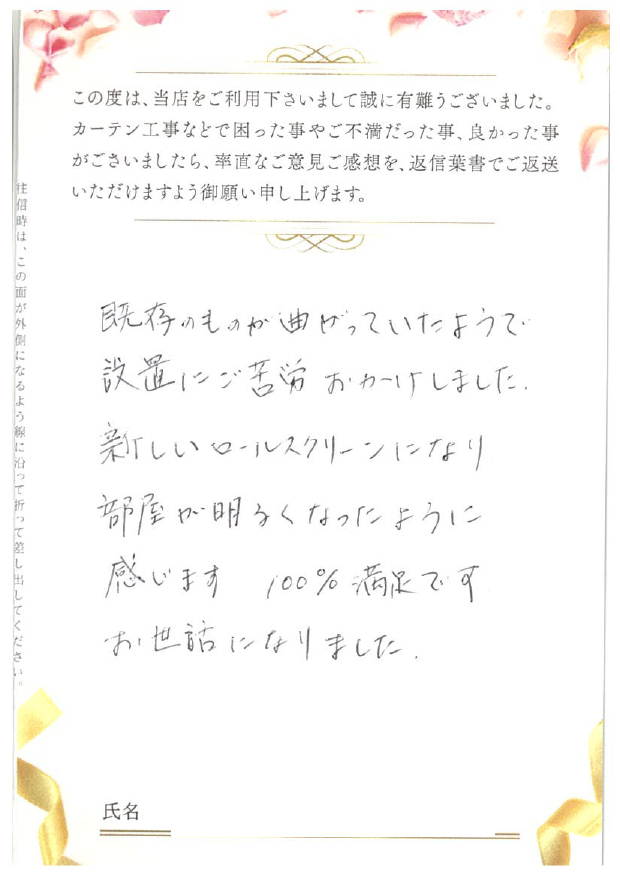 この度は、当店をご利用下さいまして誠に有難うございました。
カーテン工事などで困った事やご不満だった事、良かった事
がございましたら、率直なご意見ご感想を、返信葉書でご返送
いただけますよう御願い申し上げます。
往信時は、この面が外側になるよう線に沿って折って差し出してください。
既存のものが曲がっていたようで
設置にご苦労おかけしました.
新しいロールスクリーンになり
部屋が明るくなったように
感じます 100%満足です
お世話になりました.
氏名